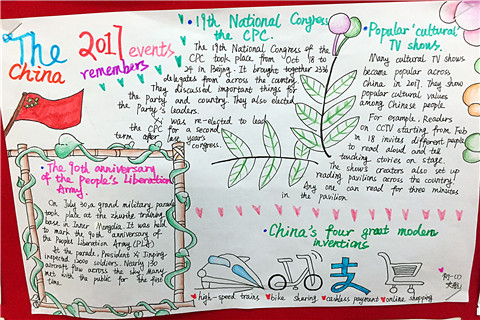 The 2017 events
China remembers
·19th National Congress
the CPC.
The 19th National Congress of the
CPC took place from Oct 18 to
24 in Beijing. It brought together 2336
delegates from across the country.
They discussed important things for
the Party and country. They also elected
the Party's leaders.
Xi was re-elected to lead
the CPC for a second
term after last years
Congress.
·Popular 'cultural'
TV shows.
Many cultural TV shows
became popular across
China in 2017. They show
popular cultural values
among Chinese people.
For example, Readers
on CCTV starting from Feb
in 18 invites different people
to read aloud and tell
touching stories on stage.
The show's creators also set up
reading pavilions across the country.
Any one can read for three minutes
in the pavilion.
·The 90th anniversary
of the People's Liberation
Army.
On July 30, a grand military parade
took place at the zhurihe training
base in Inner Mongolia. It was held
to mark the 90th anniversary of
the People Liberation Army (PLA)
At the parade, President Xi Jinping
inspected 12000 soldiers. Nearly 130
aircraft flew across the sky. Many
met with the public for the first
time.
·China's four great modern
inventions
支
high-speed trains bike sharing cashless payment online shopping